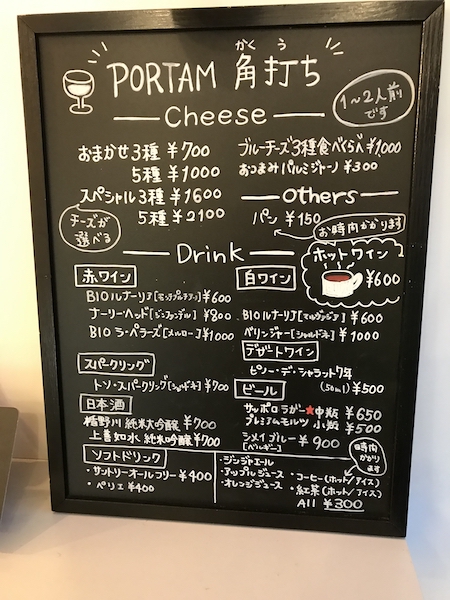 かく う
PORTAM 角打ち
1〜2人前
です
Cheese
おまかせ3種 ¥700
5種 ¥1000
スペシャル3種 ¥1600
5種 ¥2100
チーズが
選べる
ブルーチーズ3種食べくらべ¥1,000
おつまみパルミジャーノ ¥300
Others
パン ¥150
お時間かかります
Drink
赤ワイン
BIOルナーリア[モンテプルチアーノ]¥600
ナーリーヘッド[ジンファンデル]¥800
BIO ラ・ペラーズ[メルロー]¥1000
スパークリング
トソ・スパークリング[シャルドネ]¥700
日本酒
楯野川 純米大吟醸 ¥700
上善如水 純米吟醸 ¥700
ホットワイン
¥600
白ワイン
BIOルナーリア[マルヴァジア]¥600
ベリンジャー[シャルドネ] ¥1000
デザートワイン
ピノー・デ・シャラット7年
(50ml) ¥500
ビール
サッポロラガー★中瓶 ¥650
プレミアムモルツ 小瓶 ¥500
シメイブルー ¥900
[ベルギー]
ソフトドリンク
・サントリーオールフリー ¥400
・ペリエ ¥400
・ジンジャエール
・アップルジュース
・オレンジジュース
時間
かかり
ます
・コーヒー(ホット/アイス)
・紅茶(ホット/アイス)
All ¥300